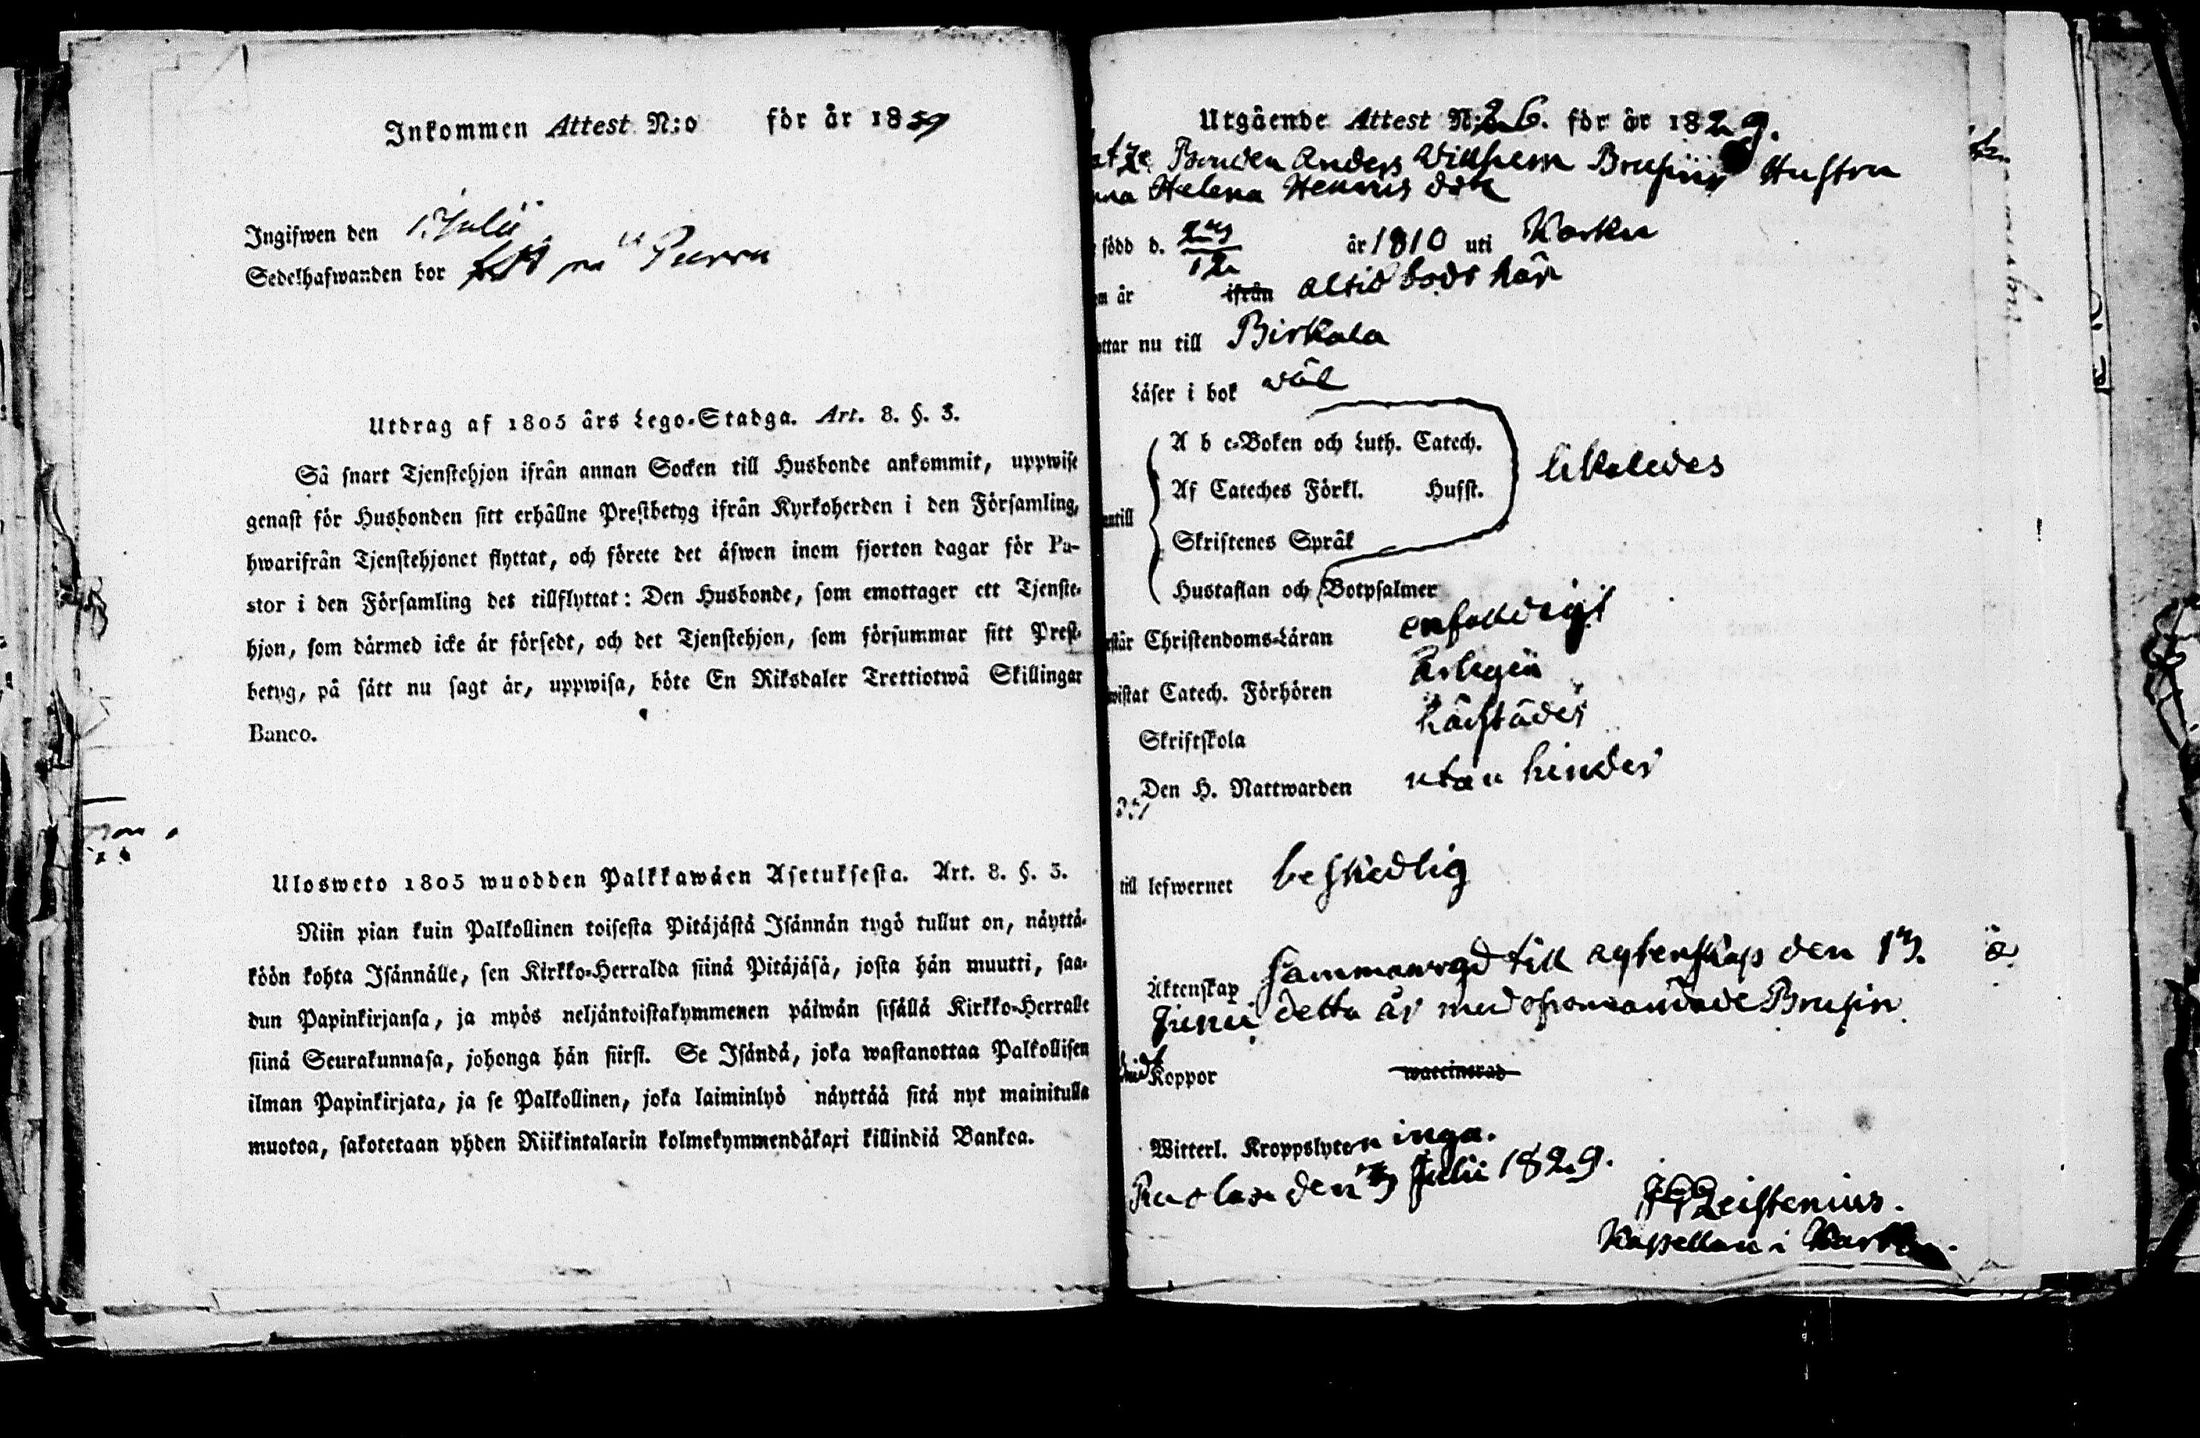 Inkommen Attest N:o för år 1859
Ingifwen den 1 Julii
Sedelhafwanden bor på Purra
Utdrag af 1805 års Lego-Stadga. Art. 8. §. 3.
Så snart Tjenstehjon ifrån annan Socken till Husbonde ankommit, uppwise
genast för Husbonden sitt erhållne Prestbetyg ifrån Kyrkoherden i den Församling,
hwarifrån Tjenstehjonet flyttat, och förete det äfwen inom fjorton dagar för Pa-
stor i den Församling det tillflyttat: Den Husbonde, som emottager ett Tjenste-
hjon, som därmed icke är försedt, och det Tjenstehjon, som försummar sitt Prest-
betyg, på sätt nu sagt är, uppwisa, böte En Riksdaler Trettiotwå Skillingar
Banco.
Ulosweto 1805 wuodden Palkkawäen Asetuksesta. Art. 8. §. 3.
Niin pian kuin Palkollinen toisesta Pitäjästä Isännän tygö tullut on, näyttä-
köön kohta Isännälle, sen Kirkko-Herralda siinä Pitäjäsä, josta hän muutti, saa-
dun Papinkirjansa, ja myös neljäntoistakymmenen päiwän sisällä Kirkko-Herralle
siinä Seurakunnasa, johonga hän siirst. Se Isändä, joka wastanottaa Palkollisen
ilman Papinkirjata, ja se Palkollinen, joka laiminlyö näyttää sitä nyt mainitulla
muotoa, sakotetaan yhden Riikintalarin kolmekymmendäkaxi killindiä Bankoa.
Utgående Attest N:26. för år 1829.
Bonden Anders Willhelm Brusiin Hustru
Helena Henrics dotr
född d. 2/12 år 1810 uti Karku
är ifrån altid bodt här
ttar nu till Birkala
Läser i bok wäl
A b c-Boken och Luth. Catech.
Af Cateches Förkl. Husst.
likaledes
antill
Skriftenes Språk
Hustaflan och Botpsalmer
står Christendoms-Läran enfaldigt
wistat Catech. Förhören årligen
Skriftskola härstädes
Den H. Nattwarden utan hinder
till lefwernet beskedlig
Äktenskap sammanwigd till ägtenskap den 13.
Junii detta år med ofwannämde Brusin
Koppor waccinerad
Witterl. Kroppslyten inga.
den 3 Julii 1829.
Leistenius.
Kapellan i Karku.